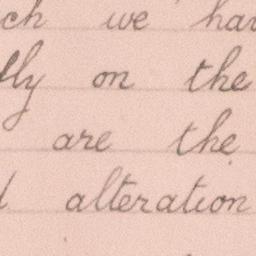 ch we hav
lly on the
are the
d alteration